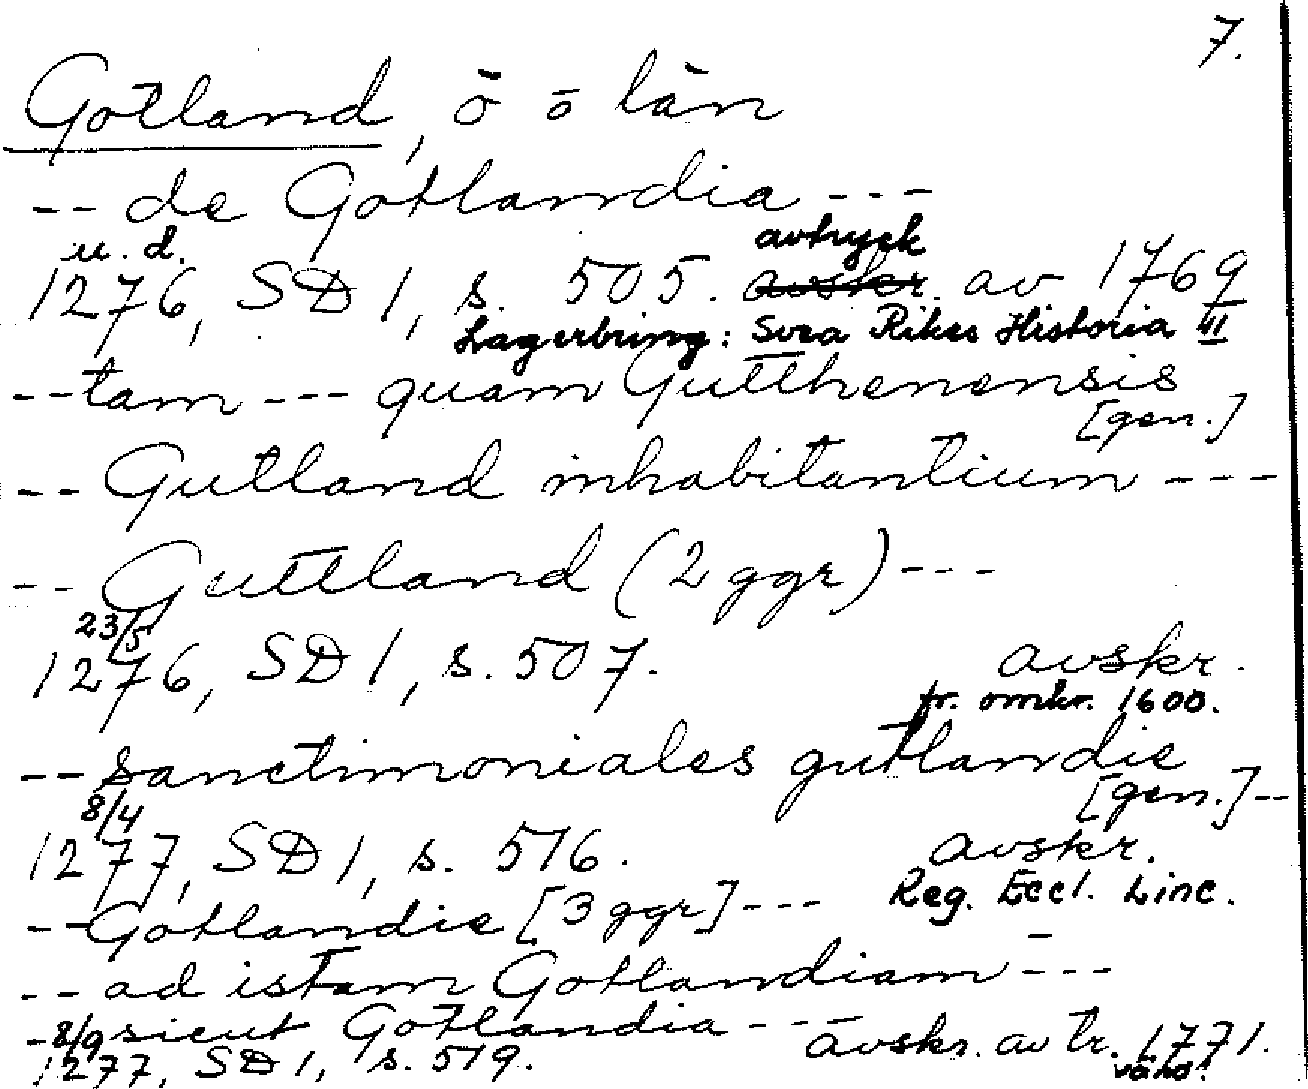 7.
Gotland, ö o län
-- de Gotlandia ---
u. d. avtryck
1276, SD 1, s. 505. avskr. av 1769
Lagerbring: Svea Rikes Historia III
-- tam --- quam Gutthenensis
[gen.]
-- Gutland inhabitantium ---
-- Guttland (2 ggr) ---
23/5
1276, SD 1, s. 507. avskr.
fr. omkr. 1600.
-- sanctimoniales gutlandie
[gen.] --
8/4
1277, SD 1, s. 516. avskr.
Reg. Eccl. Linc.
-- Gotlandie [3 ggr] ---
-- ad istam Gotlandiam ---
- sicut Gotlandia ---
8/9 avskr. av tr. 1771.
1277, SD 1, s. 519.